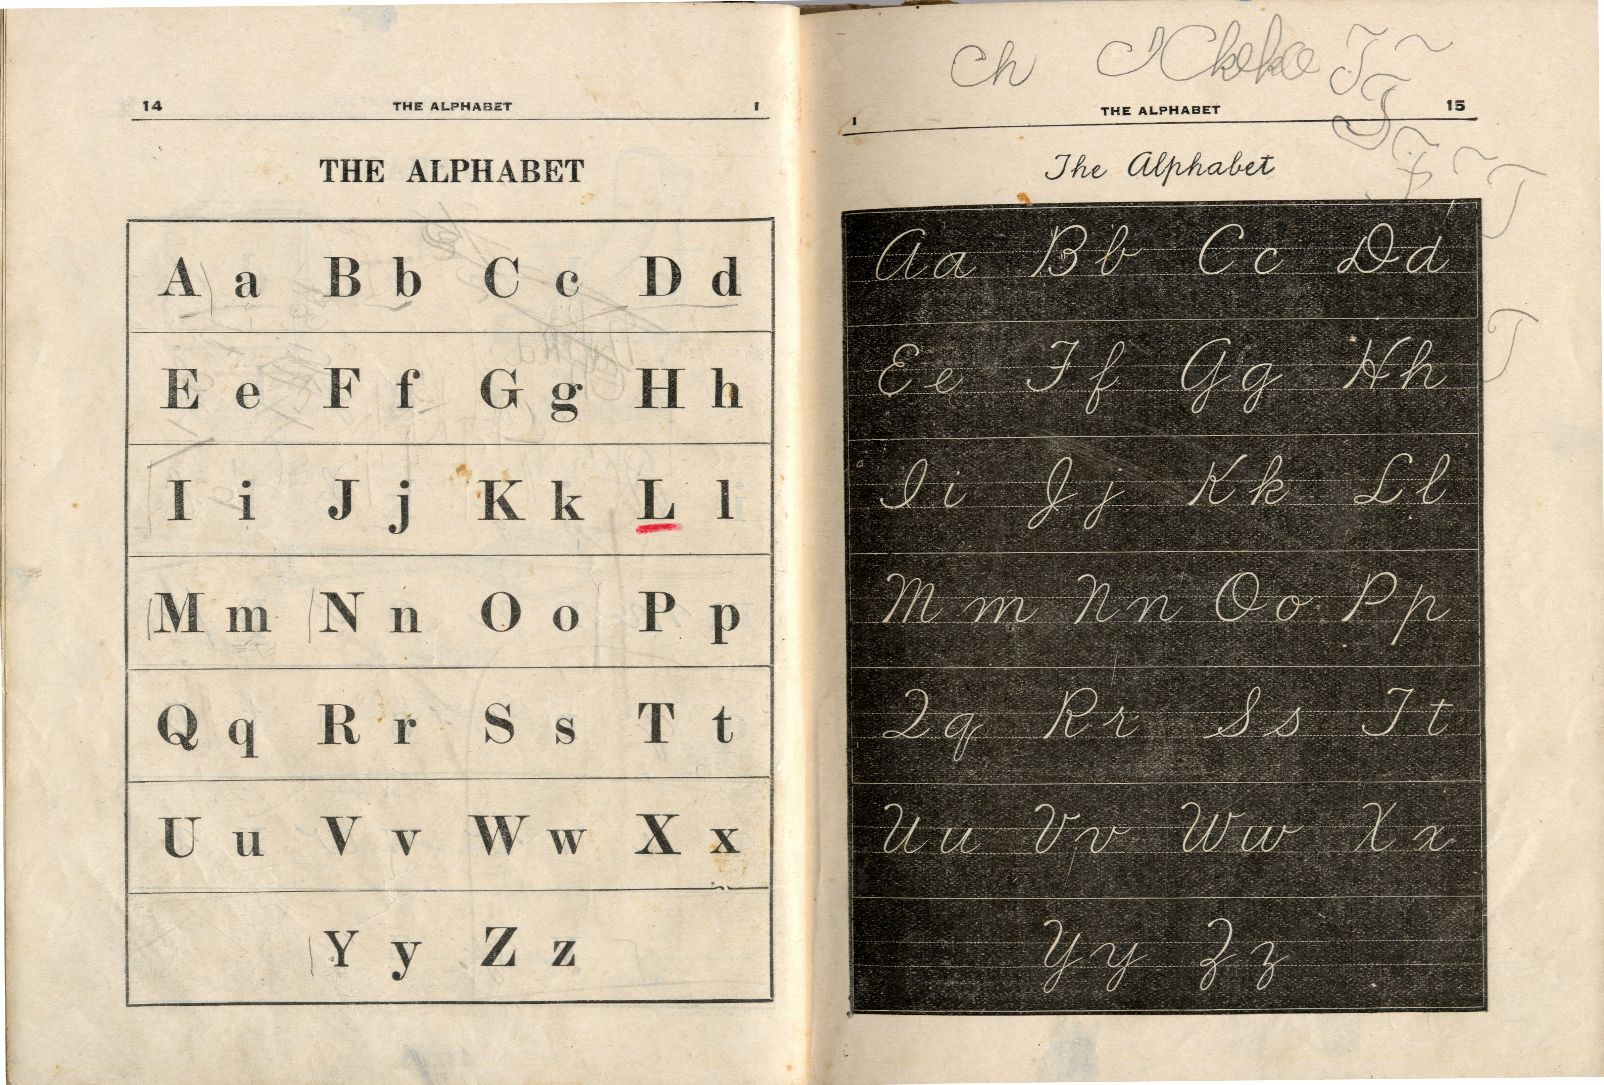 14 THE ALPHABET I
THE ALPHABET
A a B b C c D d
E e F f G g H h
I i J j K k L l
M m N n O o P p
Q q R r S s T t
U u V v W w X x
Y y Z z
ch
I THE ALPHABET 15
The Alphabet
A a B b C c D d
E e F f G g H h
I i J j K k L l
M m N n O o P p
Q q R r S s T t
U u V v W w X x
Y y Z z